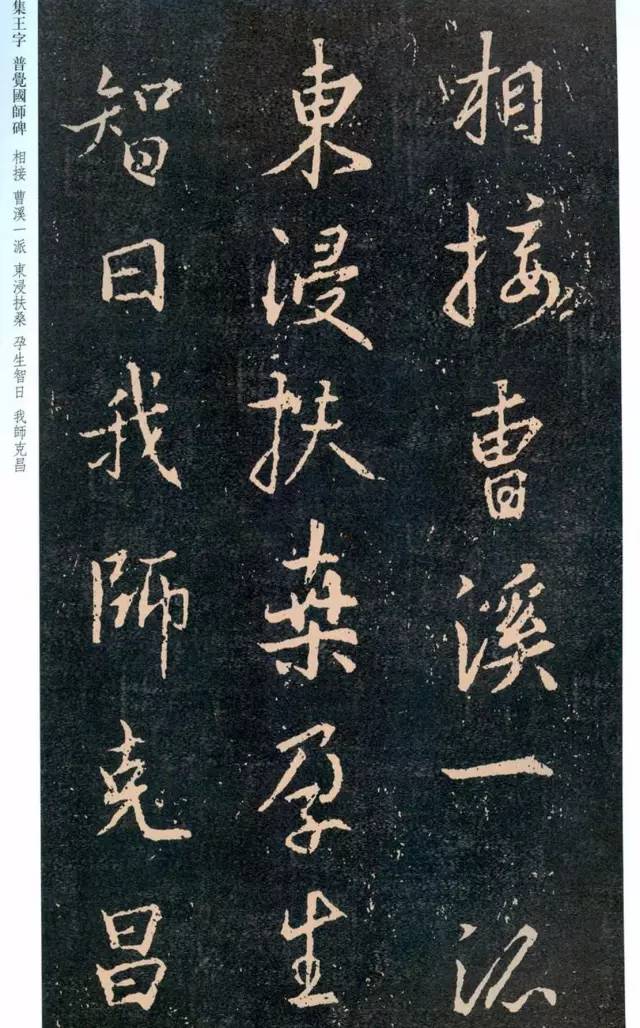 相接曹溪一派
東浸扶桑孕生
智日我師克昌
集王字 普覺國師碑 相接 曹溪一派 東浸扶桑 孕生智日 我師克昌